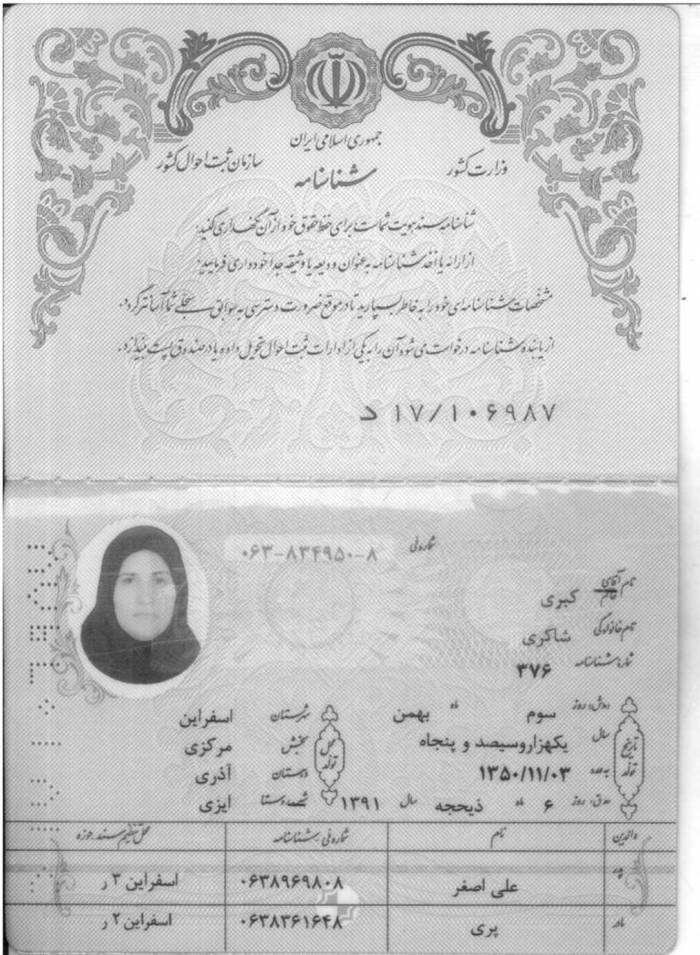 جمهوری اسلامی ایران
وزارت کشور
سازمان ثبت احوال کشور
شناسنامه
شناسنامه سند هویت شماست برای حفظ حقوق خود از آن نگهداری کنید.
از ارائه یا اخذ شناسنامه به عنوان ودیعه یا وثیقه جداً خودداری فرمایید.
مشخصات شناسنامه‌ای خود را به خاطر بسپارید تا در موقع ضرورت دسترسی به سوابق سجلی شما آسانتر گردد.
از یابنده شناسنامه درخواست می‌شود آن را به یکی از ادارات ثبت احوال تحویل داده یا در صندوق پست بیندازد.
د ۱۷/۱۰۶۹۸۷
شماره ملی ۰۶۳-۸۳۴۹۵۰-۸
نام آقای خانم کبری
نام خانوادگی شاکری
شماره شناسنامه ۳۷۶
تاریخ تولد
روز سوم ماه بهمن
سال یکهزاروسیصد و پنجاه
به عدد ۱۳۵۰/۱۱/۰۳
روز ۶ ماه ذیحجه سال ۱۳۹۱
محل تولد
شهرستان اسفراین
بخش مرکزی
دهستان آذری
شهر/روستا ایزی
والدین نام شماره ملی/شناسنامه محل تنظیم سند/حوزه
پدر علی اصغر ۰۶۳۸۹۶۹۸۰۸ اسفراین ۳ ر
مادر پری ۰۶۳۸۳۶۱۶۴۸ اسفراین ۲ ر